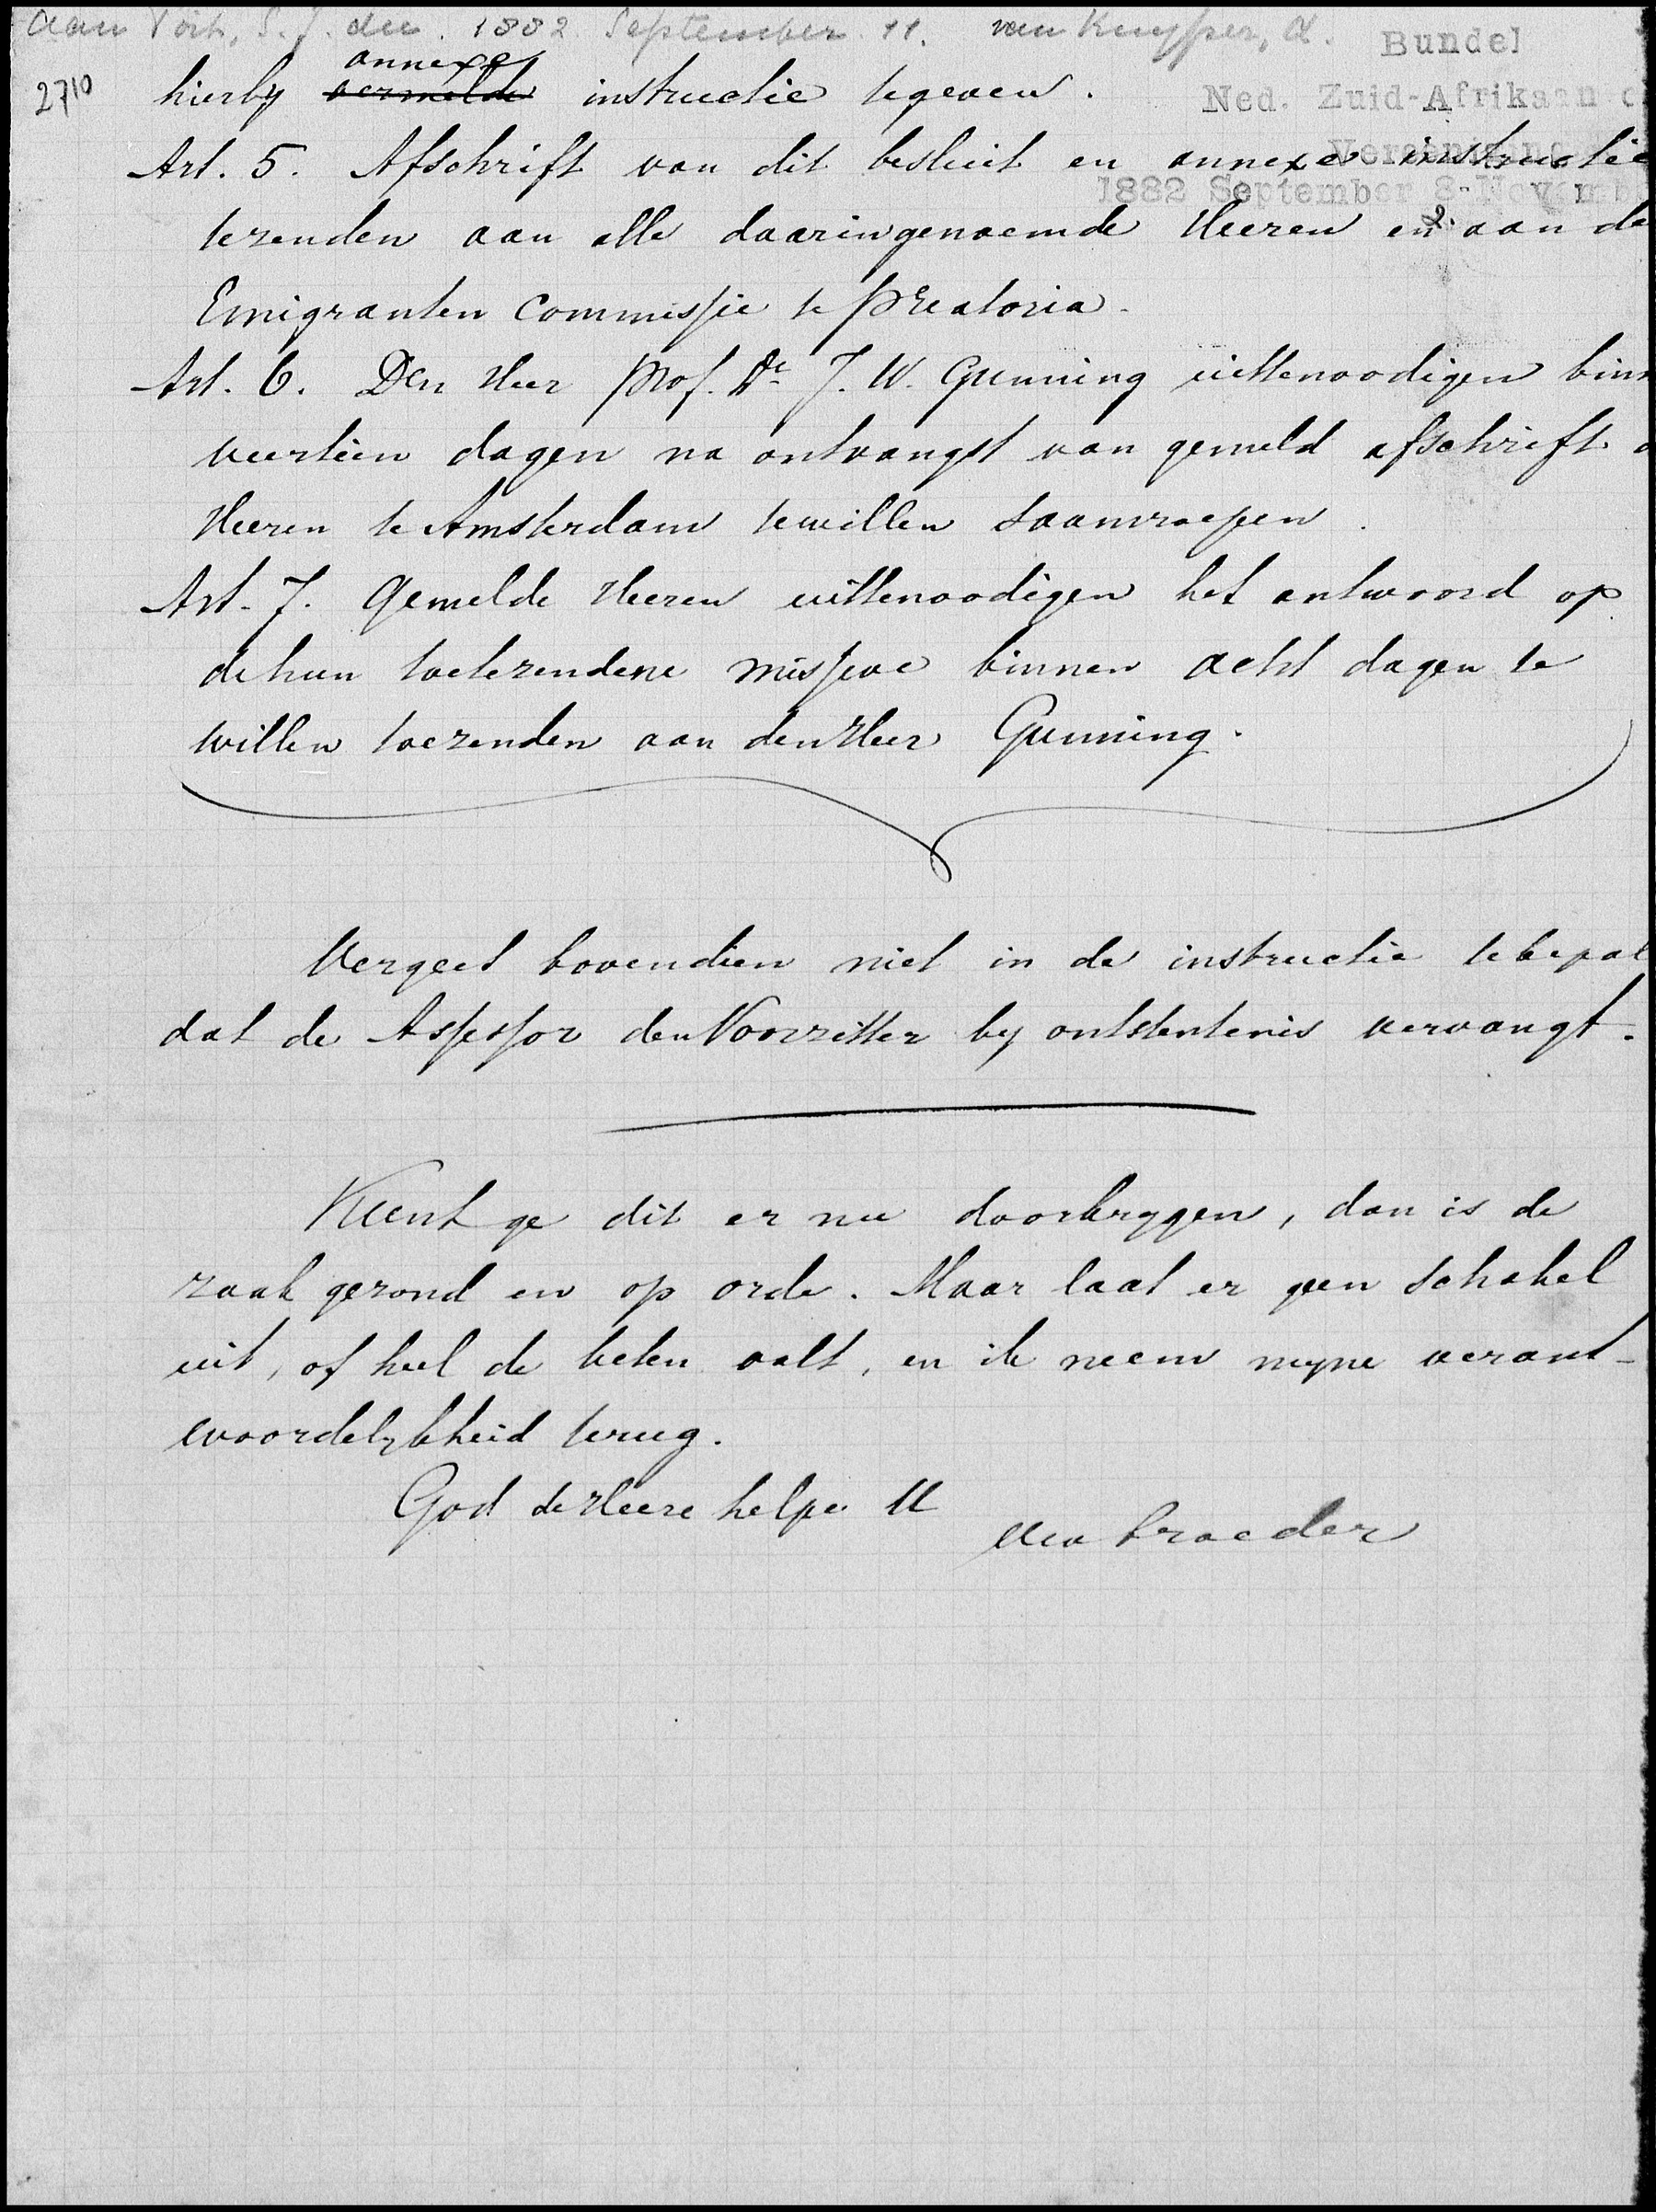 Aan Toit, S. J. du. 1882. September 11. van Kuyper, A.
Bundel
Ned. Zuid-Afrikaan
1882 September 8-Novemb
2710
annexe
hierby vermelde instructie tegeven.
Art. 5. Afschrift van dit besluit en annexe instructie
tezenden aan alle daaringenoemde Heeren en aan de
Emigranten Commissie te Preatoria.
Art. 6. Den Heer Prof. Dr. J. W. Gunning uittenoodigen binn
veertien dagen na ontvangst van gemeld afschrift
Heeren te Amsterdam tewillen saamroepen.
Art. 7. Gemelde Heeren uittenoodigen het antwoord op
de hun toetezendene missive binnen acht dagen te
willen toezenden aan den Heer Gunning.
Vergeet bovendien niet in de instructie tebepal
dat de Assessor den Voorzitter by ontstentenis vervangt.
Kunt ge dit er nu doorkrygen, dan is de
zaak gezond en op orde. Maar laat er geen schakel
uit, of heel de keten valt, en ik neem myne verant-
woordelykheid terug.
God de Heere helpe U
Uw broeder